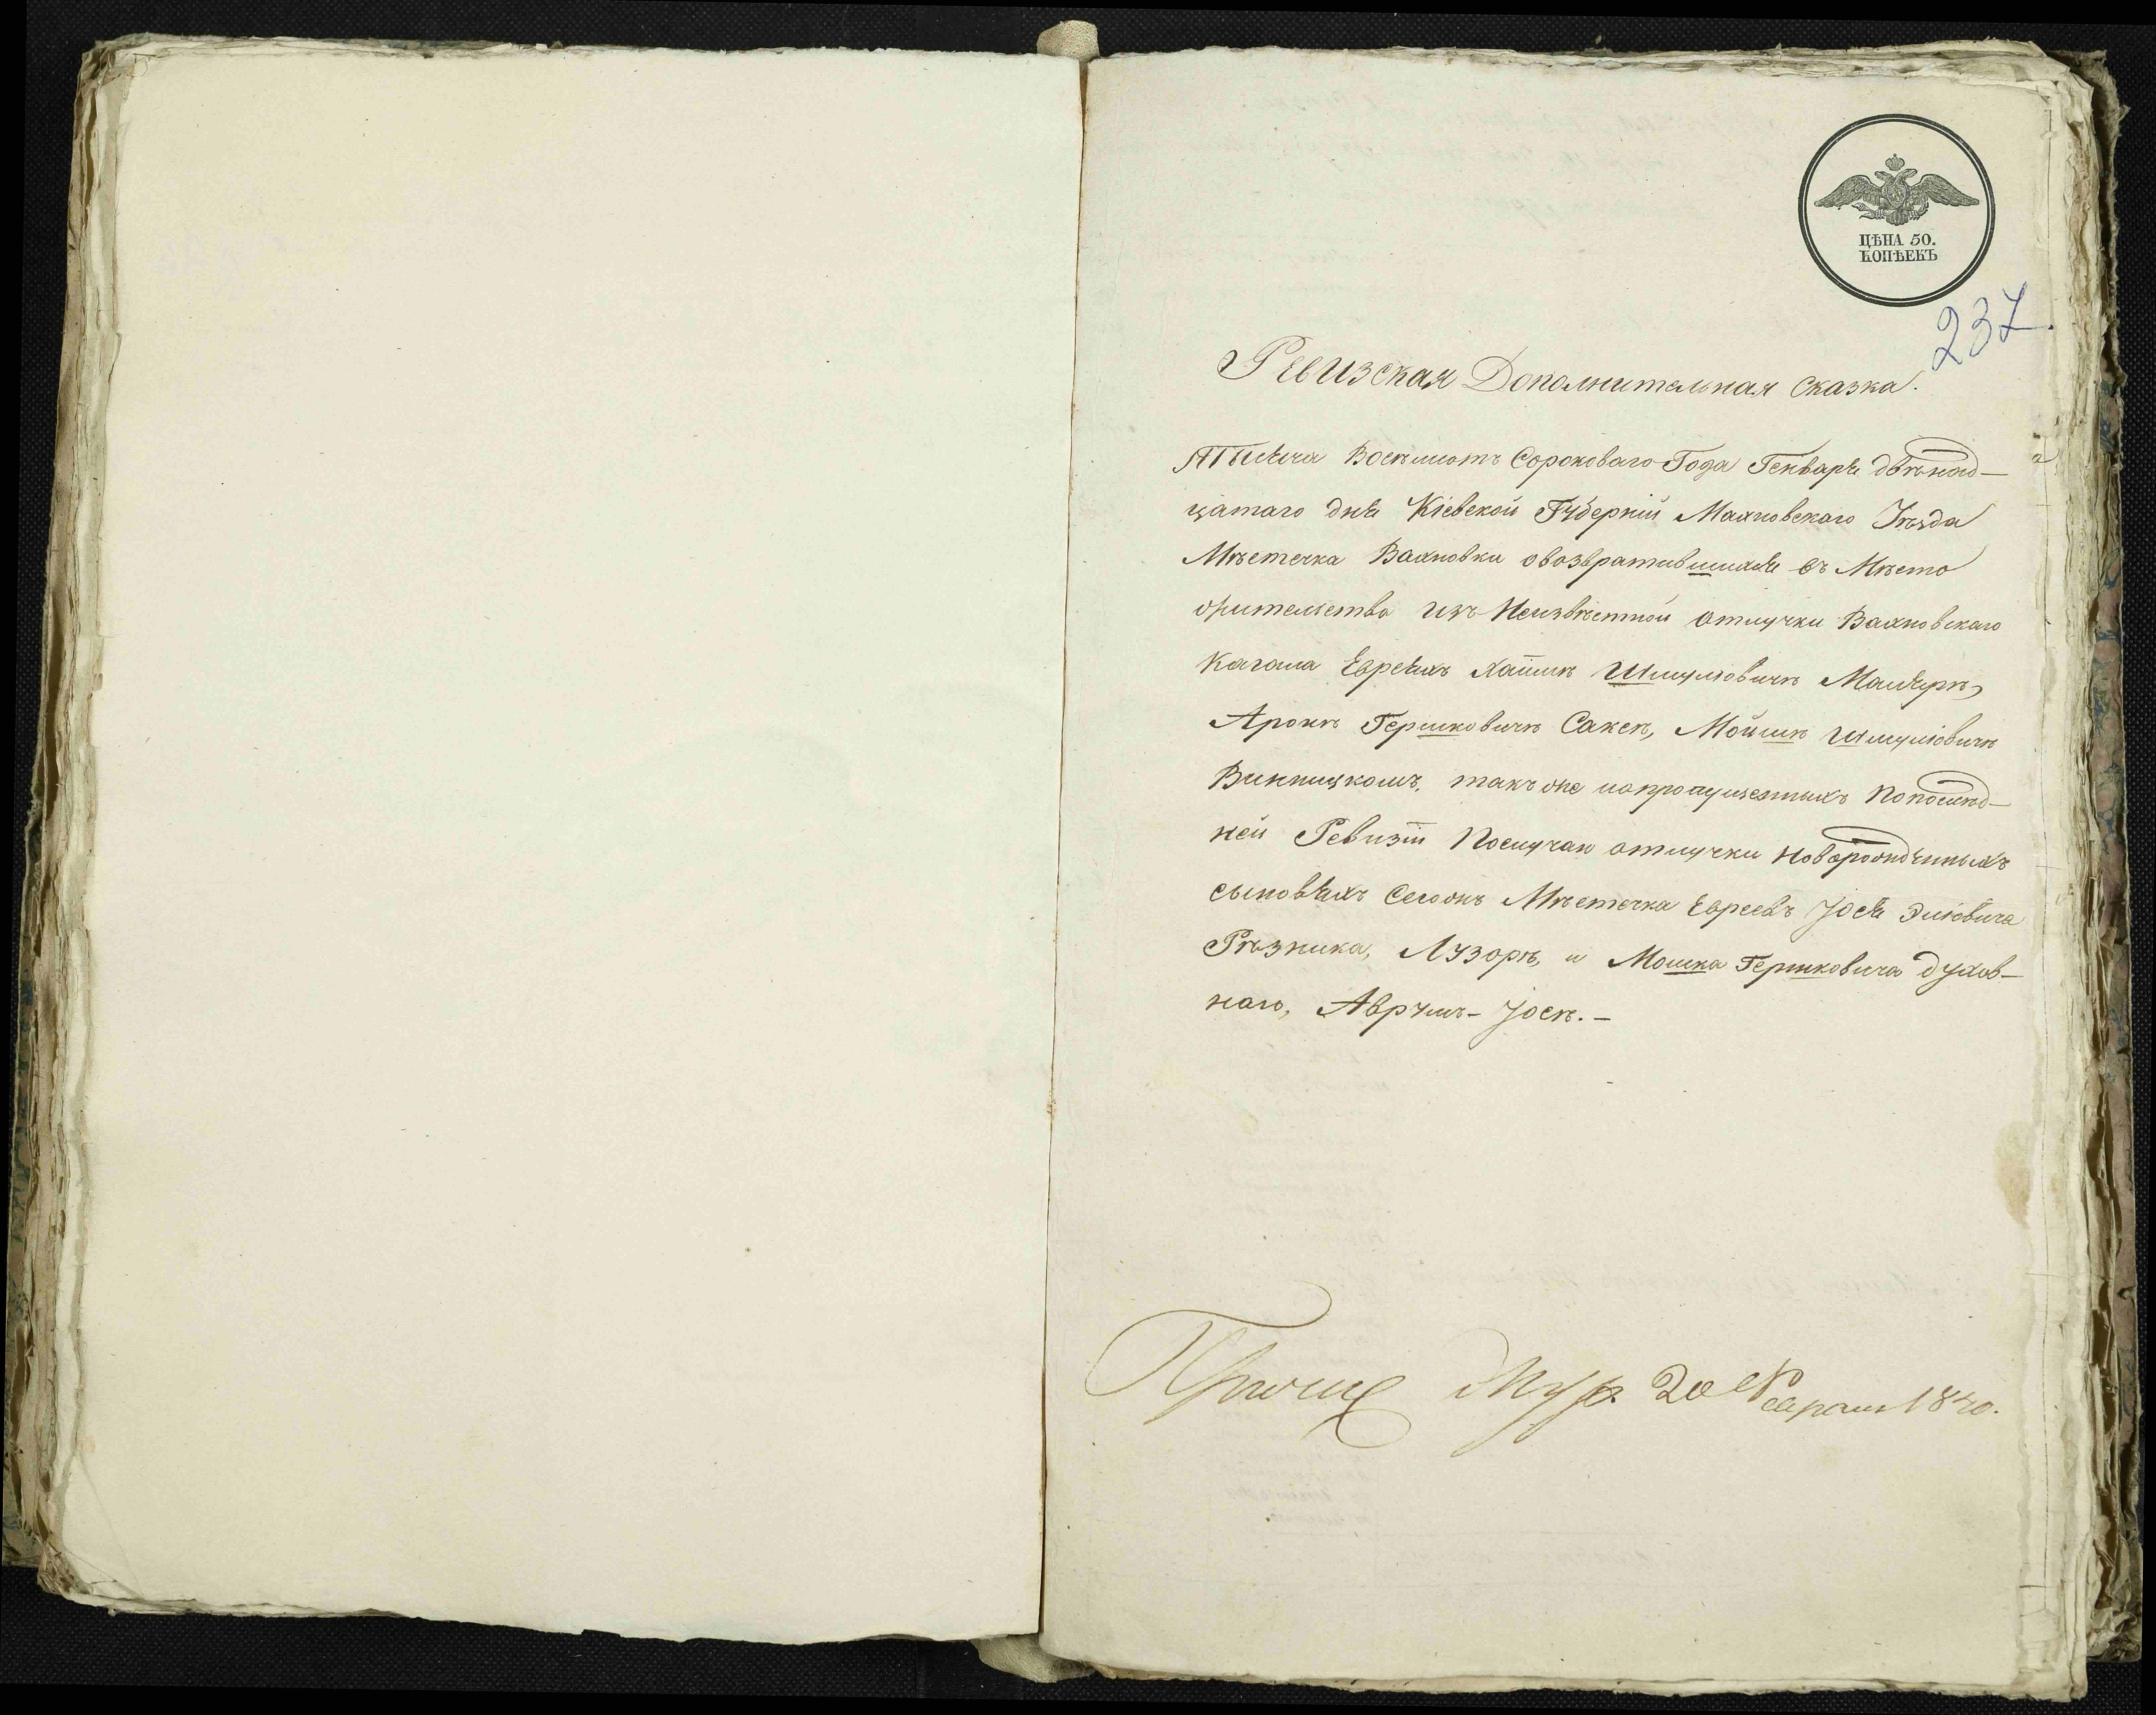 ЦѢНА 50.
КОПѢЕКЪ
237.
Ревизская Дополнительная сказка.
Тысяча Восемьсотъ Сороковаго Года Генваря двѣнад-
цатаго дня Кіевской Губерніи Махновскаго Уѣзда
Мѣстечка Вахновки овозвратившихся въ Мѣсто
жительства изъ Неизвѣстной отлучки Вахновскаго
Кагала Евреяхъ Хаимѣ Шмуліовичѣ
Аронѣ Гершковичѣ Саксѣ, Мойшѣ Шмуліовичѣ
Винницкомъ, такъ же ипропущенныхъ Попослѣд-
ней Ревизіи Послучаю отлучки новорожденныхъ
сыновьяхъ Сегожъ Мѣстечка Евреевъ Іося Эліовича
Рѣзника, Лузорѣ, и Мошка Гершковича Духов-
наго, Аврумъ-Іосѣ.-
20 1840.